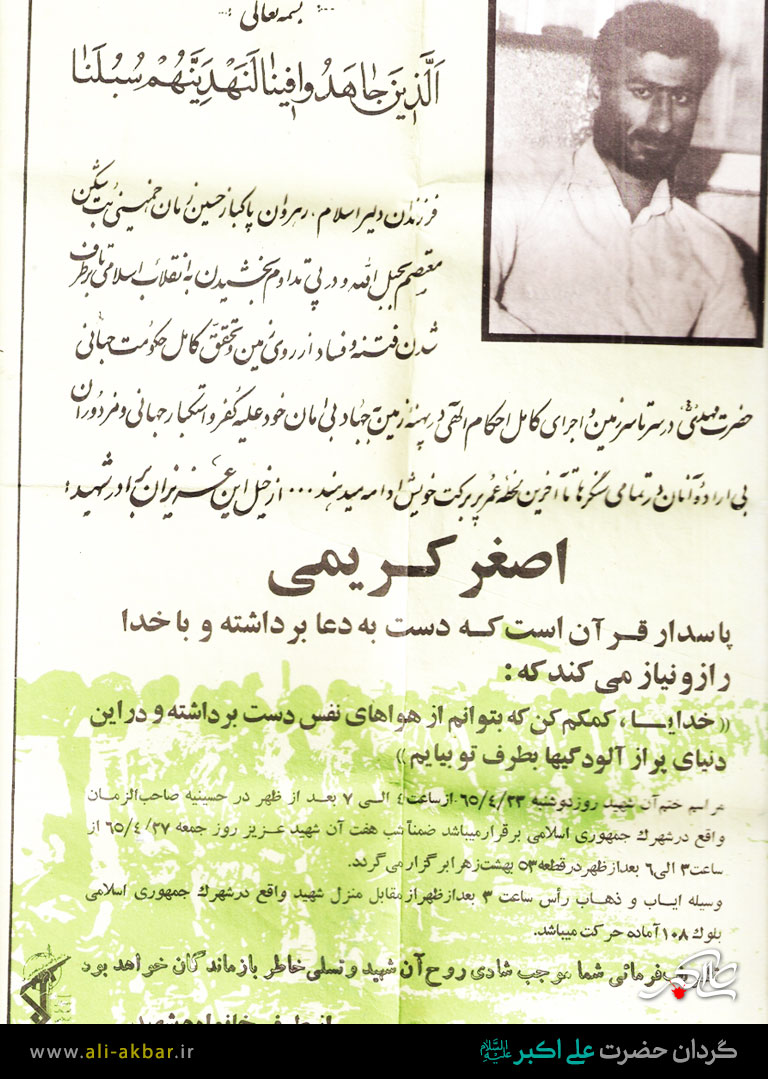 بسمه تعالی
اَلَّذینَ جاهَدُوا فینا لَنَهْدِیَنَّهُمْ سُبُلَنا
فرزندان دلیر اسلام، رهروان پاکباز حسین زمان خمینی بت شکن
معتصم بحبل الله و در پی تداوم بخشیدن به انقلاب اسلامی تا برطرف
شدن فتنه و فساد از روی زمین و تحقق کامل حکومت جهانی
حضرت مهدی در سرتاسر زمین و اجرای کامل احکام الهی در پهنه زمین به جهاد بی امان خود علیه کفر و استکبار جهانی و مزدوران
بی اراده آنان در تمامی سنگرها تا آخرین لحظه عمر پر برکت خویش ادامه میدهند ... از خیل این عزیزان برادر شهید:
اصغر کریمی
پاسدار قرآن است که دست به دعا برداشته و با خدا
رازونیاز می کند که :
«خدایا ، کمکم کن که بتوانم از هواهای نفس دست برداشته و در این
دنیای پر از آلودگیها بطرف تو بیایم»
مراسم ختم آن شهید روز دوشنبه ۶۵/۴/۲۳ از ساعت ٤ الی ۷ بعد از ظهر در حسینیه صاحب الزمان
واقع در شهرك جمهوری اسلامی برقرار میباشد ضمناً شب هفت آن شهید عزیز روز جمعه ۶۵/۴/۲۷ از
ساعت ۳ الی ۶ بعدازظهر در قطعه ۵۳ بهشت زهرا برگزار می گردد.
وسیله ایاب و ذهاب رأس ساعت ۳ بعدازظهر از مقابل منزل شهید واقع در شهرك جمهوری اسلامی
بلوك ۱۰۸ آماده حرکت میباشد.
تشریف فرمائی شما موجب شادی روح آن شهید و تسلی خاطر بازماندگان خواهد بود
از طرف خانواده شهید
علی اکبر
www.ali-akbar.ir
گردان حضرت علی اکبر علیه السلام